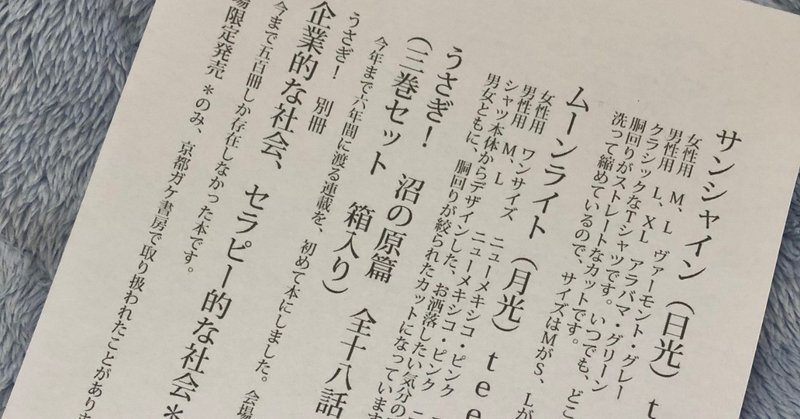 サンシャイン（日光）t
女性用　M、L　ヴァーモント・グレー
男性用　L、XL　アラバマ・グリーン
クラシックなTシャツです。いつでも、どこ
胴回りがストレートなカットです。
洗って縮めているので、サイズはMがS、Lが
ムーンライト（月光）tee
女性用　ワンサイズ　ニューメキシコ・ピンク
男性用　M、L　ニューメキシコ・ピンク
シャツ本体からデザインした、お洒落したい気分の
男女ともに、胴回りが絞られたカットになっています
うさぎ！　沼の原篇　全十八話
（三巻セット　箱入り）
今年まで六年間に渡る連載を、初めて本にしました。会場
うさぎ！　別冊
企業的な社会、セラピー的な社会＊
今まで五百冊しか存在しなかった本です。
場限定発売　＊のみ、京都ガケ書房で取り扱われたことがありま